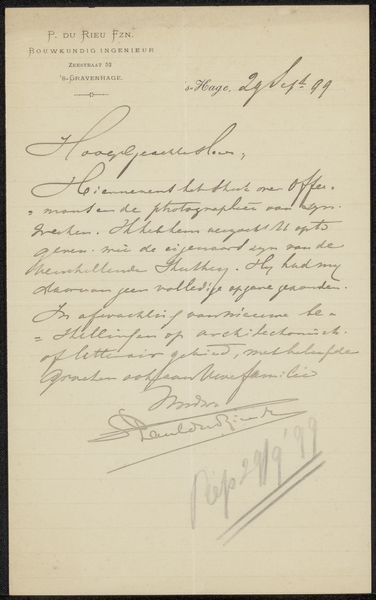 P. DU RIEU FZN.
BOUWKUNDIG INGENIEUR
ZEESTRAAT 52
'S-GRAVENHAGE.
's-Hage, 29 Sept. 99
Hooggeachte Heer,
Hiernevens het stuk over Offer-
=mans en de photographieën van zijn
werken. Ik heb hem verzocht U op te
geven wie de eigenaars zijn van de
verschillende stukken. Hij had mij
daarvan geen volledige opgave gezonden.
In afwachting van nieuwe be-
=stellingen op architectonisch
of litterair gebied, met beleefde
groeten ook aan Uwe familie
Paul du Rieu
29/9 '99